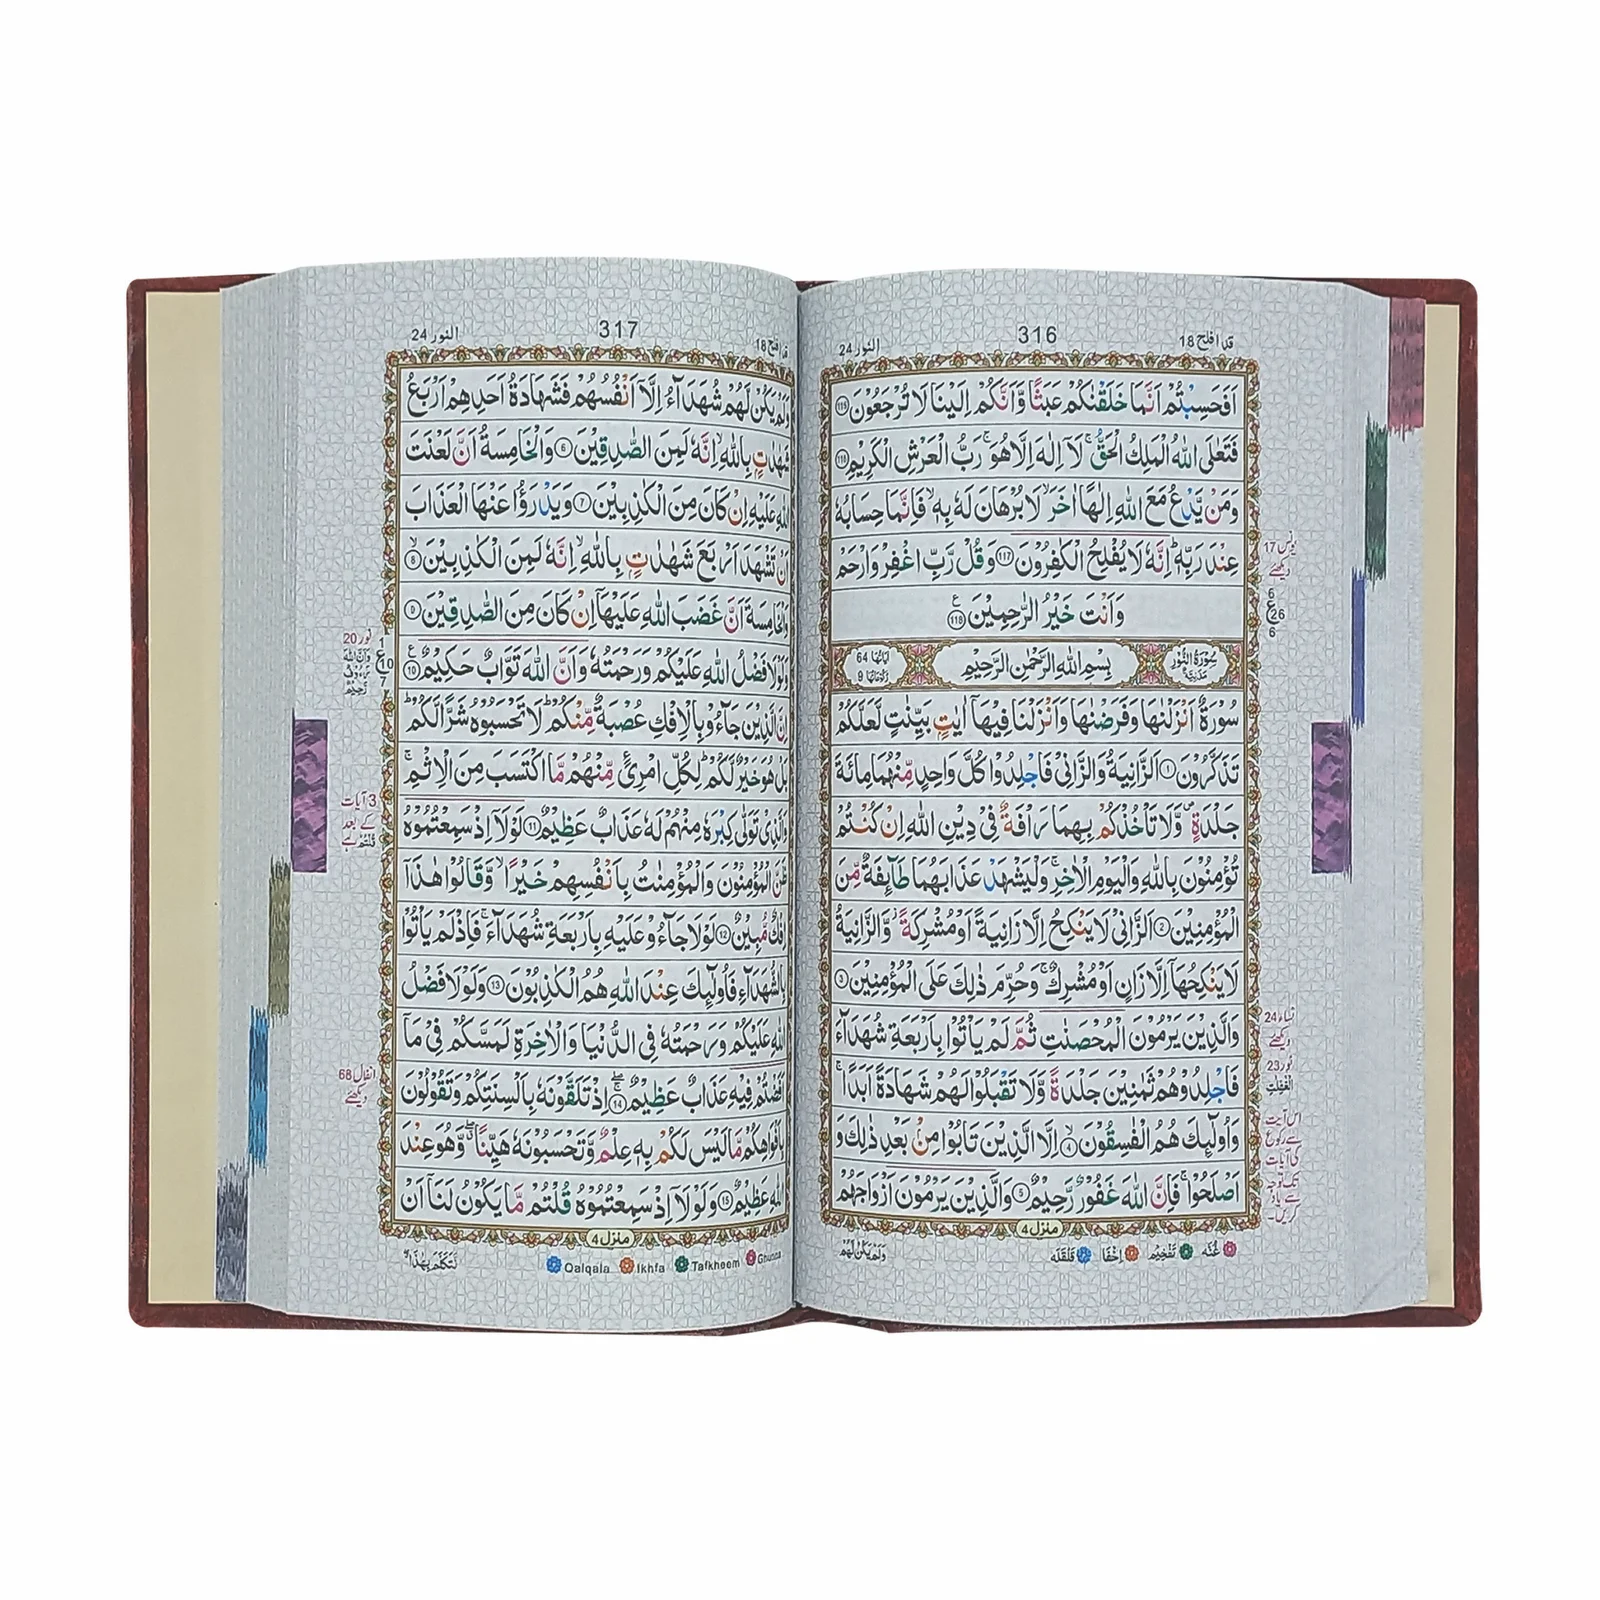 قد افلح 18
316
النور 24
اَفَحَسِبْتُمْ اَنَّمَا خَلَقْنٰكُمْ عَبَثًا وَّاَنَّكُمْ اِلَيْنَا لَا تُرْجَعُوْنَ 115
فَتَعٰلَى اللّٰهُ الْمَلِكُ الْحَقُّ ۚ لَاۤ اِلٰهَ اِلَّا هُوَ ۚ رَبُّ الْعَرْشِ الْكَرِيْمِ 116
وَمَنْ يَّدْعُ مَعَ اللّٰهِ اِلٰهًا اٰخَرَ ۙ لَا بُرْهَانَ لَهٗ بِهٖ ۙ فَاِنَّمَا حِسَابُهٗ
عِنْدَ رَبِّهٖ ؕ اِنَّهٗ لَا يُفْلِحُ الْكٰفِرُوْنَ 117 وَقُلْ رَّبِّ اغْفِرْ وَارْحَمْ
وَاَنْتَ خَيْرُ الرّٰحِمِيْنَ 118
سُوْرَةُ النُّوْرِ مَدَنِيَّةٌ
بِسْمِ اللّٰهِ الرَّحْمٰنِ الرَّحِيْمِ
اٰيَاتُهَا 64
رُكُوْعَاتُهَا 9
سُوْرَةٌ اَنْزَلْنٰهَا وَفَرَضْنٰهَا وَاَنْزَلْنَا فِيْهَاۤ اٰيٰتٍۭ بَيِّنٰتٍ لَّعَلَّكُمْ
تَذَكَّرُوْنَ 1 اَلزَّانِيَةُ وَالزَّانِيْ فَاجْلِدُوْا كُلَّ وَاحِدٍ مِّنْهُمَا مِائَةَ
جَلْدَةٍ ۪ وَّلَا تَاْخُذْكُمْ بِهِمَا رَاْفَةٌ فِيْ دِيْنِ اللّٰهِ اِنْ كُنْتُمْ
تُؤْمِنُوْنَ بِاللّٰهِ وَالْيَوْمِ الْاٰخِرِ ۚ وَلْيَشْهَدْ عَذَابَهُمَا طَآىِٕفَةٌ مِّنَ
الْمُؤْمِنِيْنَ 2 اَلزَّانِيْ لَا يَنْكِحُ اِلَّا زَانِيَةً اَوْ مُشْرِكَةً ؗ وَّالزَّانِيَةُ
لَا يَنْكِحُهَاۤ اِلَّا زَانٍ اَوْ مُشْرِكٌ ۚ وَحُرِّمَ ذٰلِكَ عَلَى الْمُؤْمِنِيْنَ 3
وَالَّذِيْنَ يَرْمُوْنَ الْمُحْصَنٰتِ ثُمَّ لَمْ يَاْتُوْا بِاَرْبَعَةِ شُهَدَآءَ
فَاجْلِدُوْهُمْ ثَمٰنِيْنَ جَلْدَةً وَّلَا تَقْبَلُوْا لَهُمْ شَهَادَةً اَبَدًا ۚ
وَاُولٰٓىِٕكَ هُمُ الْفٰسِقُوْنَ 4 اِلَّا الَّذِيْنَ تَابُوْا مِنْۢ بَعْدِ ذٰلِكَ وَ
اَصْلَحُوْا ۚ فَاِنَّ اللّٰهَ غَفُوْرٌ رَّحِيْمٌ 5 وَالَّذِيْنَ يَرْمُوْنَ اَزْوَاجَهُمْ
منزل 4
غُنَّه تَفْخِيْم اِخْفَا قَلْقَلَه
وَلَمْ يَكُنْ لَّهُمْ
يونس 17
دیکھئے
6
ع 26
6
نساء 24
دیکھئے
نور 23
الْغٰفِلٰتِ
اس آیت
سے رکوع
کی آیات
تک توجہ
سے یاد
کریں۔
قد افلح 18
317
النور 24
وَلَمْ يَكُنْ لَّهُمْ شُهَدَآءُ اِلَّاۤ اَنْفُسُهُمْ فَشَهَادَةُ اَحَدِهِمْ اَرْبَعُ
شَهٰدٰتٍۭ بِاللّٰهِ ۙ اِنَّهٗ لَمِنَ الصّٰدِقِيْنَ 6 وَالْخَامِسَةُ اَنَّ لَعْنَتَ
اللّٰهِ عَلَيْهِ اِنْ كَانَ مِنَ الْكٰذِبِيْنَ 7 وَيَدْرَؤُا عَنْهَا الْعَذَابَ
اَنْ تَشْهَدَ اَرْبَعَ شَهٰدٰتٍۭ بِاللّٰهِ ۙ اِنَّهٗ لَمِنَ الْكٰذِبِيْنَ 8
وَالْخَامِسَةَ اَنَّ غَضَبَ اللّٰهِ عَلَيْهَاۤ اِنْ كَانَ مِنَ الصّٰدِقِيْنَ 9
وَلَوْلَا فَضْلُ اللّٰهِ عَلَيْكُمْ وَرَحْمَتُهٗ وَاَنَّ اللّٰهَ تَوَّابٌ حَكِيْمٌ 10
اِنَّ الَّذِيْنَ جَآءُوْ بِالْاِفْكِ عُصْبَةٌ مِّنْكُمْ ؕ لَا تَحْسَبُوْهُ شَرًّا لَّكُمْ ؕ
بَلْ هُوَ خَيْرٌ لَّكُمْ ؕ لِكُلِّ امْرِئٍ مِّنْهُمْ مَّا اكْتَسَبَ مِنَ الْاِثْمِ ۚ
وَالَّذِيْ تَوَلّٰى كِبْرَهٗ مِنْهُمْ لَهٗ عَذَابٌ عَظِيْمٌ 11 لَوْلَاۤ اِذْ سَمِعْتُمُوْهُ
ظَنَّ الْمُؤْمِنُوْنَ وَالْمُؤْمِنٰتُ بِاَنْفُسِهِمْ خَيْرًا ۙ وَّقَالُوْا هٰذَاۤ
اِفْكٌ مُّبِيْنٌ 12 لَوْلَا جَآءُوْ عَلَيْهِ بِاَرْبَعَةِ شُهَدَآءَ ۚ فَاِذْ لَمْ يَاْتُوْا
بِالشُّهَدَآءِ فَاُولٰٓىِٕكَ عِنْدَ اللّٰهِ هُمُ الْكٰذِبُوْنَ 13 وَلَوْلَا فَضْلُ
اللّٰهِ عَلَيْكُمْ وَرَحْمَتُهٗ فِي الدُّنْيَا وَالْاٰخِرَةِ لَمَسَّكُمْ فِيْ مَاۤ
اَفَضْتُمْ فِيْهِ عَذَابٌ عَظِيْمٌ 14 اِذْ تَلَقَّوْنَهٗ بِاَلْسِنَتِكُمْ وَتَقُوْلُوْنَ
بِاَفْوَاهِكُمْ مَّا لَيْسَ لَكُمْ بِهٖ عِلْمٌ وَّتَحْسَبُوْنَهٗ هَيِّنًا ۖ وَّهُوَ عِنْدَ
اللّٰهِ عَظِيْمٌ 15 وَلَوْلَاۤ اِذْ سَمِعْتُمُوْهُ قُلْتُمْ مَّا يَكُوْنُ لَنَاۤ اَنْ
منزل 4
Qalqala Ikhfa Tafkheem Ghunna
نَّتَكَلَّمَ بِهٰذَا
1
ع 10
7
نور 20
وَاَنَّ اللّٰهَ
رَءُوْفٌ
رَّحِيْمٌ
3 آیات
کے بعد
قُلْتُمْ ہے
انفال 68
دیکھئے